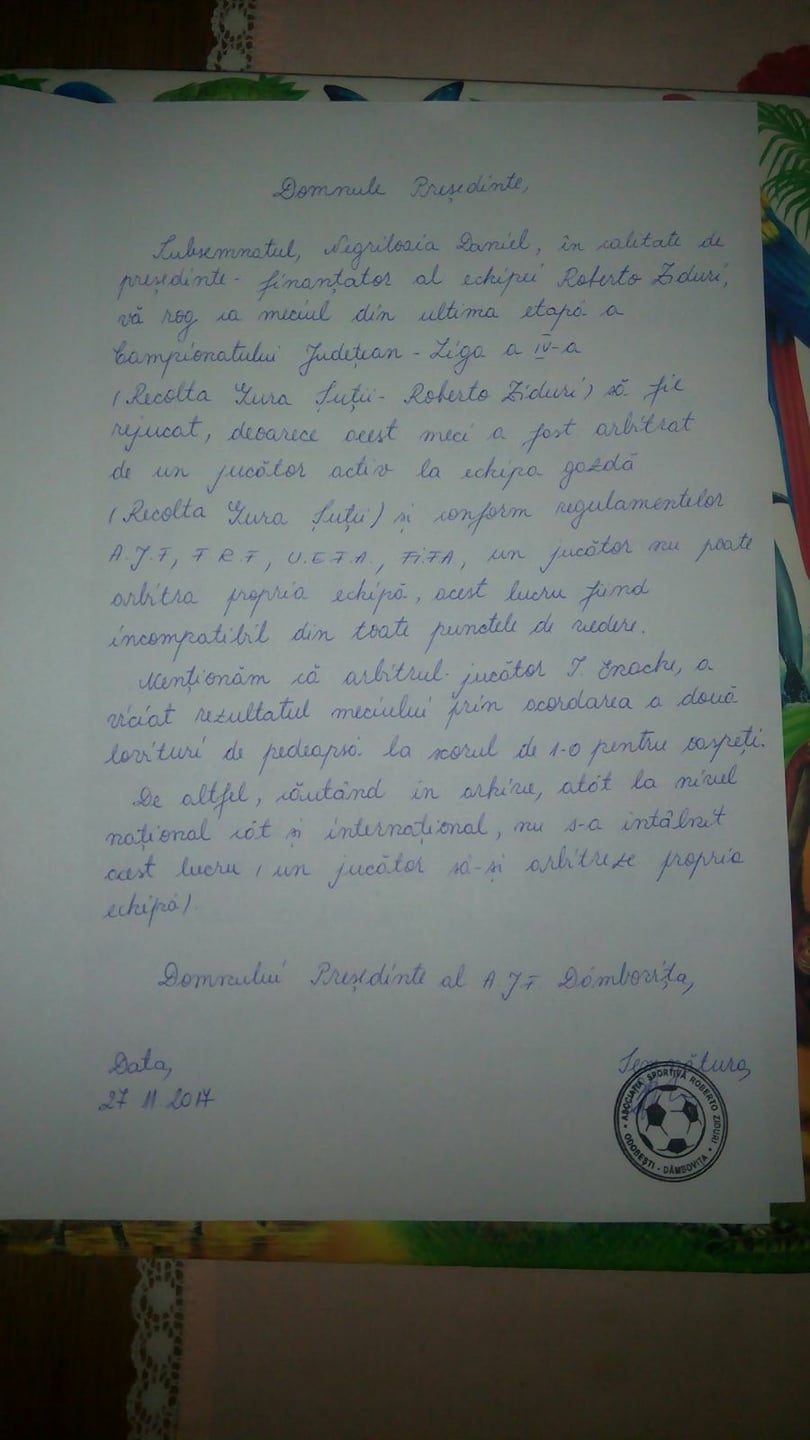 Domnule Președinte,
Subsemnatul, Negriloaia Daniel, în calitate de
președinte - finanțator al echipei Roberto Ziduri,
vă rog ca meciul din ultima etapă a
Campionatului Județean - Liga a IV-a
(Recolta Gura Șuții - Roberto Ziduri) să fie
rejucat, deoarece acest meci a fost arbitrat
de un jucător activ la echipa gazdă
(Recolta Gura Șuții) și conform regulamentelor
A.J.F, F.R.F, U.E.F.A., FIFA, un jucător nu poate
arbitra propria echipă, acest lucru fiind
incompatibil din toate punctele de vedere.
Menționăm că arbitrul-jucător I. Enache, a
viciat rezultatul meciului prin acordarea a două
lovituri de pedeapsă la scorul de 1-0 pentru oaspeți.
De altfel, căutând în arhive, atât la nivel
național cât și internațional, nu s-a întâlnit
acest lucru (un jucător să-și arbitreze propria
echipă)
Domnului Președinte al A.J.F Dâmbovița,
Data, Semnătura,
27 11 2017
ASOCIAȚIA SPORTIVĂ ROBERTO ZIDURI
ODOBEȘTI - DÂMBOVIȚA